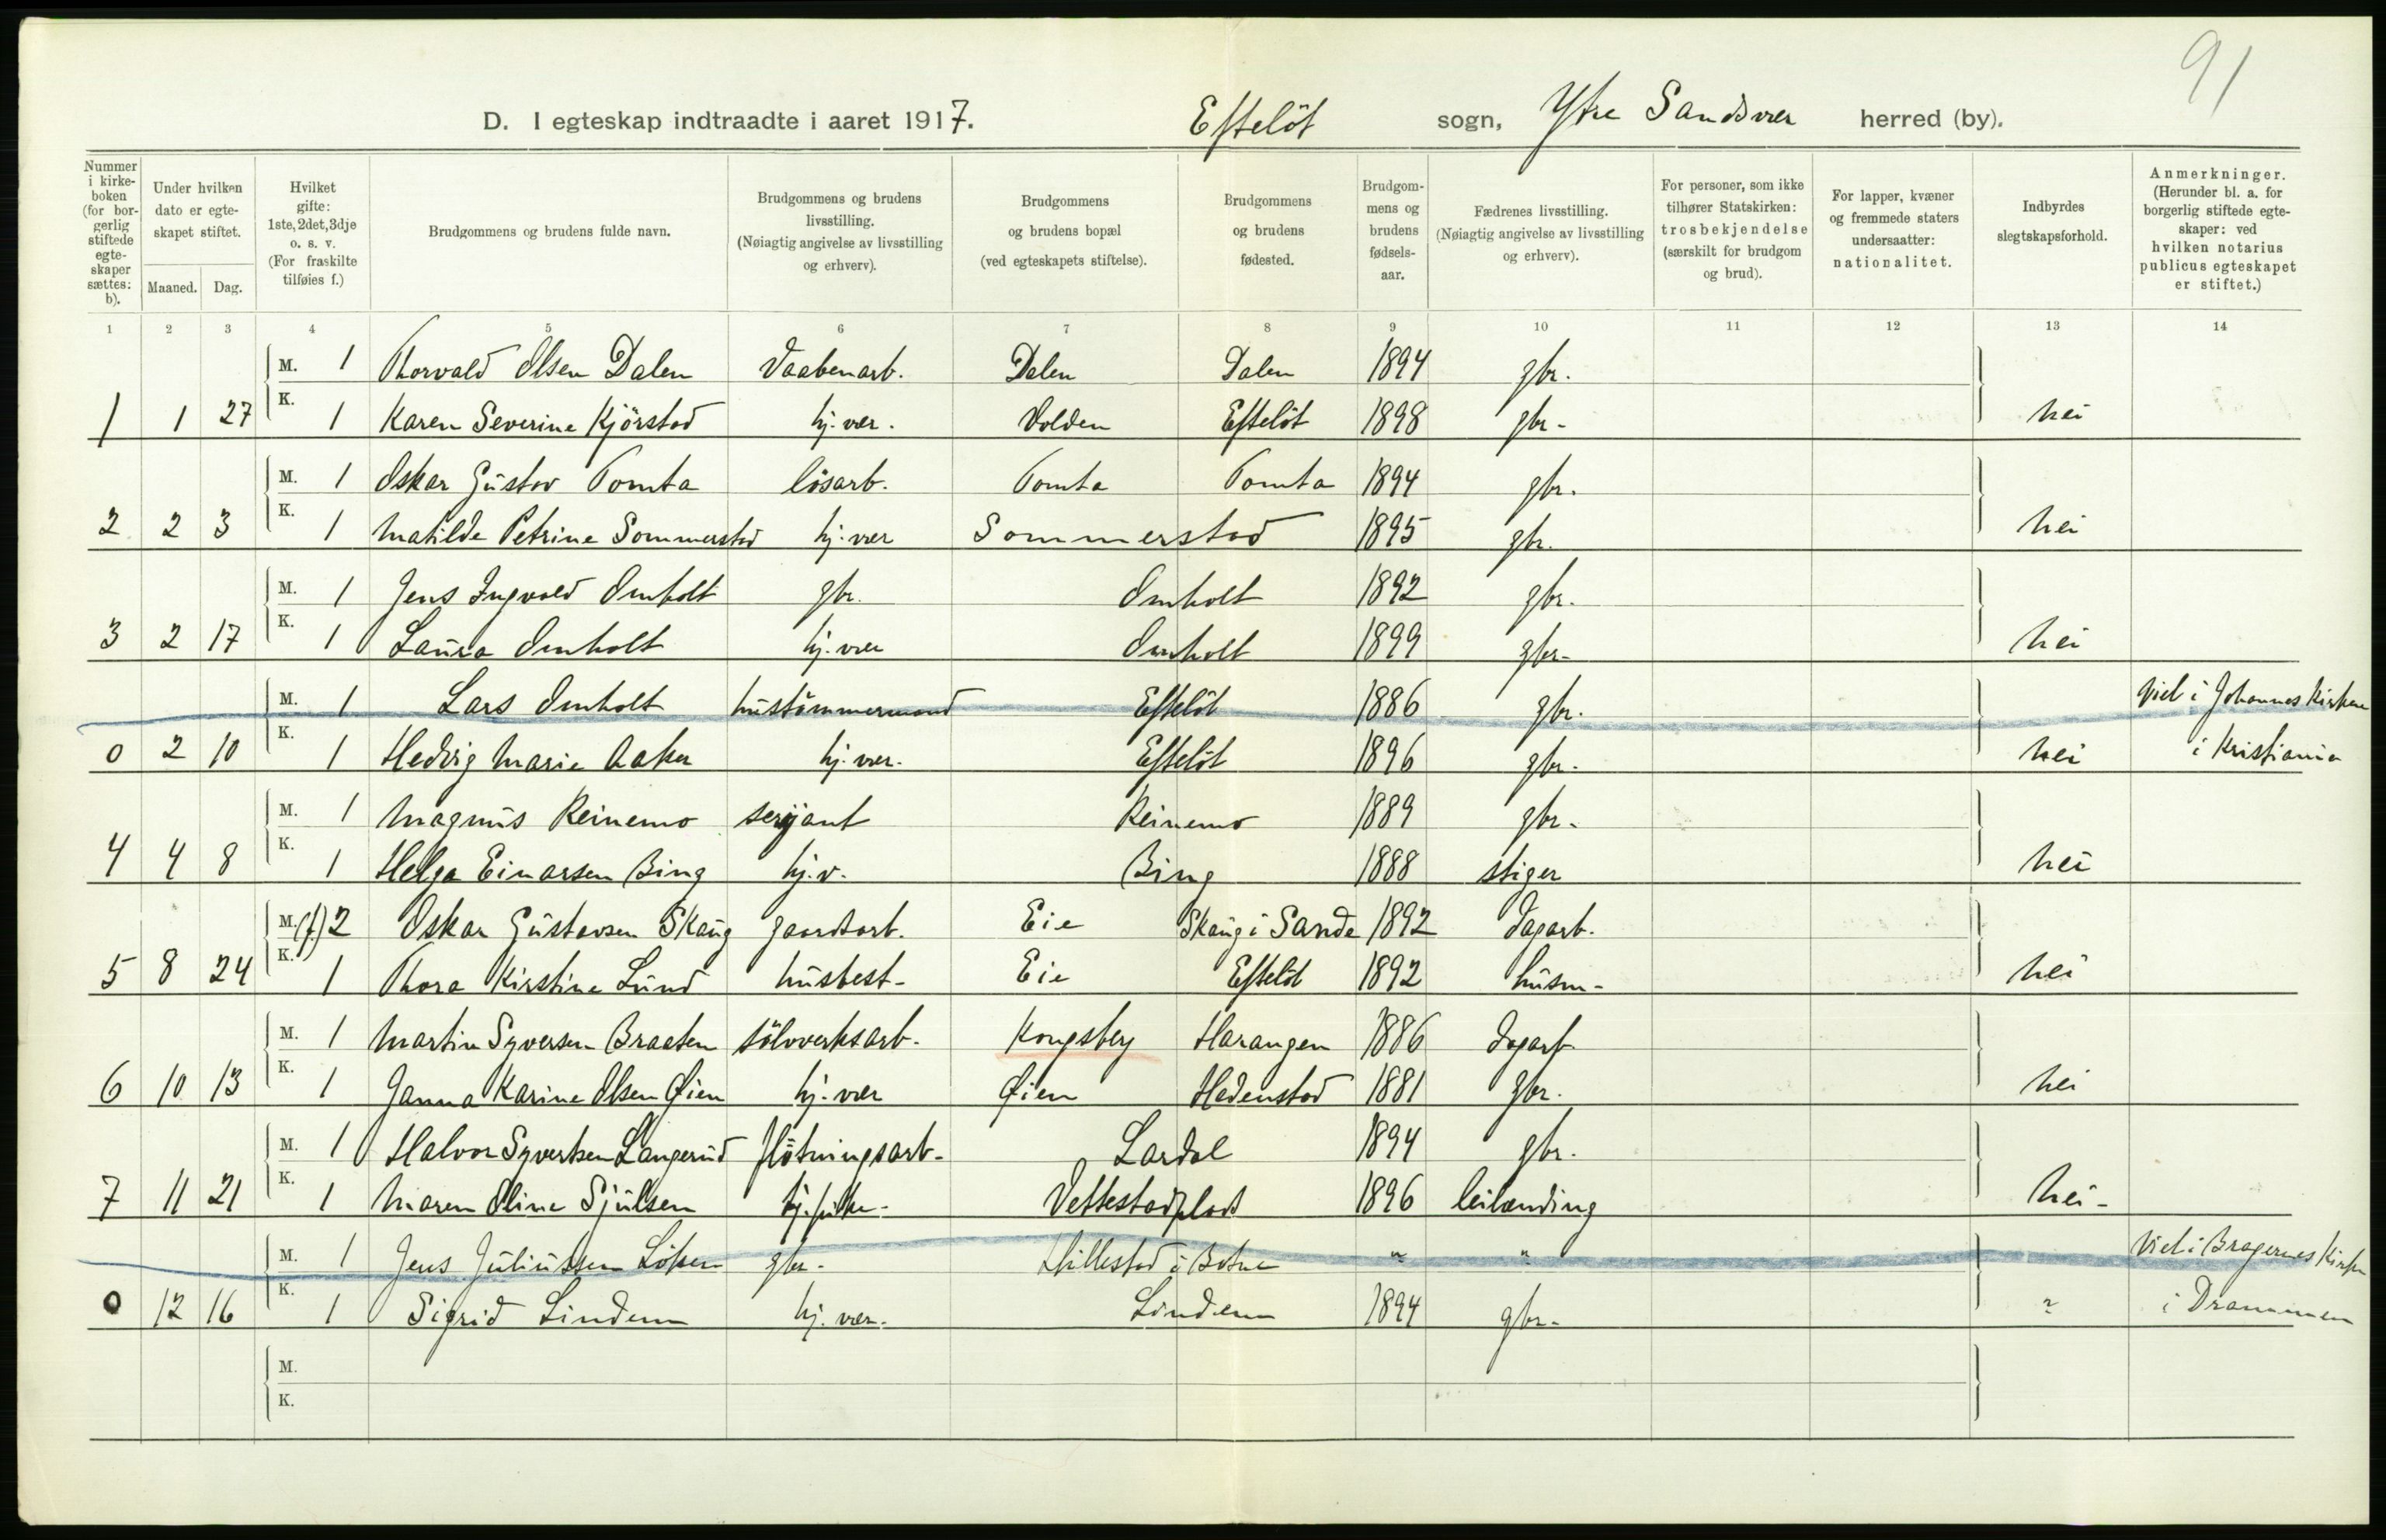 91
D. I egteskap indtraadte i aaret 1917. Efteløt sogn, Ytre Sandsvær herred (by).
Nummer i kirkeboken (for borgerlig stiftede egteskaper sættes: b). | Under hvilken dato er egteskapet stiftet. Maaned. Dag. | Hvilket gifte: 1ste, 2det, 3dje o. s. v. (For fraskilte tilføies f.) | Brudgommens og brudens fulde navn. | Brudgommens og brudens livsstilling. (Nøiagtig angivelse av livsstilling og erhverv). | Brudgommens og brudens bopæl (ved egteskapets stiftelse). | Brudgommens og brudens fødested. | Brudgommens og brudens fødselsaar. | Fædrenes livsstilling. (Nøiagtig angivelse av livsstilling og erhverv). | For personer, som ikke tilhører Statskirken: trosbekjendelse (særskilt for brudgom og brud). | For lapper, kvæner og fremmede staters undersaatter: nationalitet. | Indbyrdes slegtskapsforhold. | Anmerkninger. (Herunder bl. a. for borgerlig stiftede egteskaper: ved hvilken notarius publicus egteskapet er stiftet.)
1 2 3 4 5 6 7 8 9 10 11 12 13 14
M. 1 Thorvald Olsen Dalen Vaabenarb. Dalen Dalen 1894 gbr.
1 1 27 K. 1 Karen Severine Kjörstad hj. vær. Volden Efteløt 1898 gbr. nei
M. 1 Oskar Gustav Tomta løsarb. Tomta Tomta 1894 gbr.
2 2 3 K. 1 Matilde Petrine Sommerstad hj. vær Sommerstad 1895 gbr. nei
M. 1 Jens Ingvald Omholt gbr. Omholt 1892 gbr.
3 2 17 K. 1 Laura Omholt hj. vær Omholt 1899 gbr. nei
M. 1 Lars Omholt hustømmermand Efteløt 1886 gbr. Viet i Johannes Kirken
0 2 10 K. 1 Hedvig Marie Aaker hj. vær. Efteløt 1896 gbr. nei i Kristiania
M. 1 Magnus Reinemo serjant Reinemo 1889 gbr.
4 4 8 K. 1 Helga Einarsen Bing hj. v. Bing 1888 stiger nei
M. (f) 2 Oskar Gustavsen Skaug gaardsarb. Eie Skaug i Sande 1892 dagarb.
5 8 24 K. 1 Thora Kirstine Lund husbest. Eie Efteløt 1892 husm. nei
M. 1 Martin Syversen Braaten sølvverksarb. Kongsberg Harangen 1886 dagarb.
6 10 13 K. 1 Janna Karine Olsen Øien hj. vær Øien Hedenstad 1881 gbr. nei
M. 1 Halvor Syvertsen Langerud fløtningsarb. Lardal 1894 gbr.
7 11 21 K. 1 Maren Oline Sjulsen Vettestadplads 1896 leilænding nei
M. 1 Jens Juliussen Løken gbr. Hillestad i Botne " " Viet i Bragernes Kirke
0 12 16 K. 1 Sigrid Lindem hj. vær. Lindem 1894 gbr. " i Drammen
M.
K.